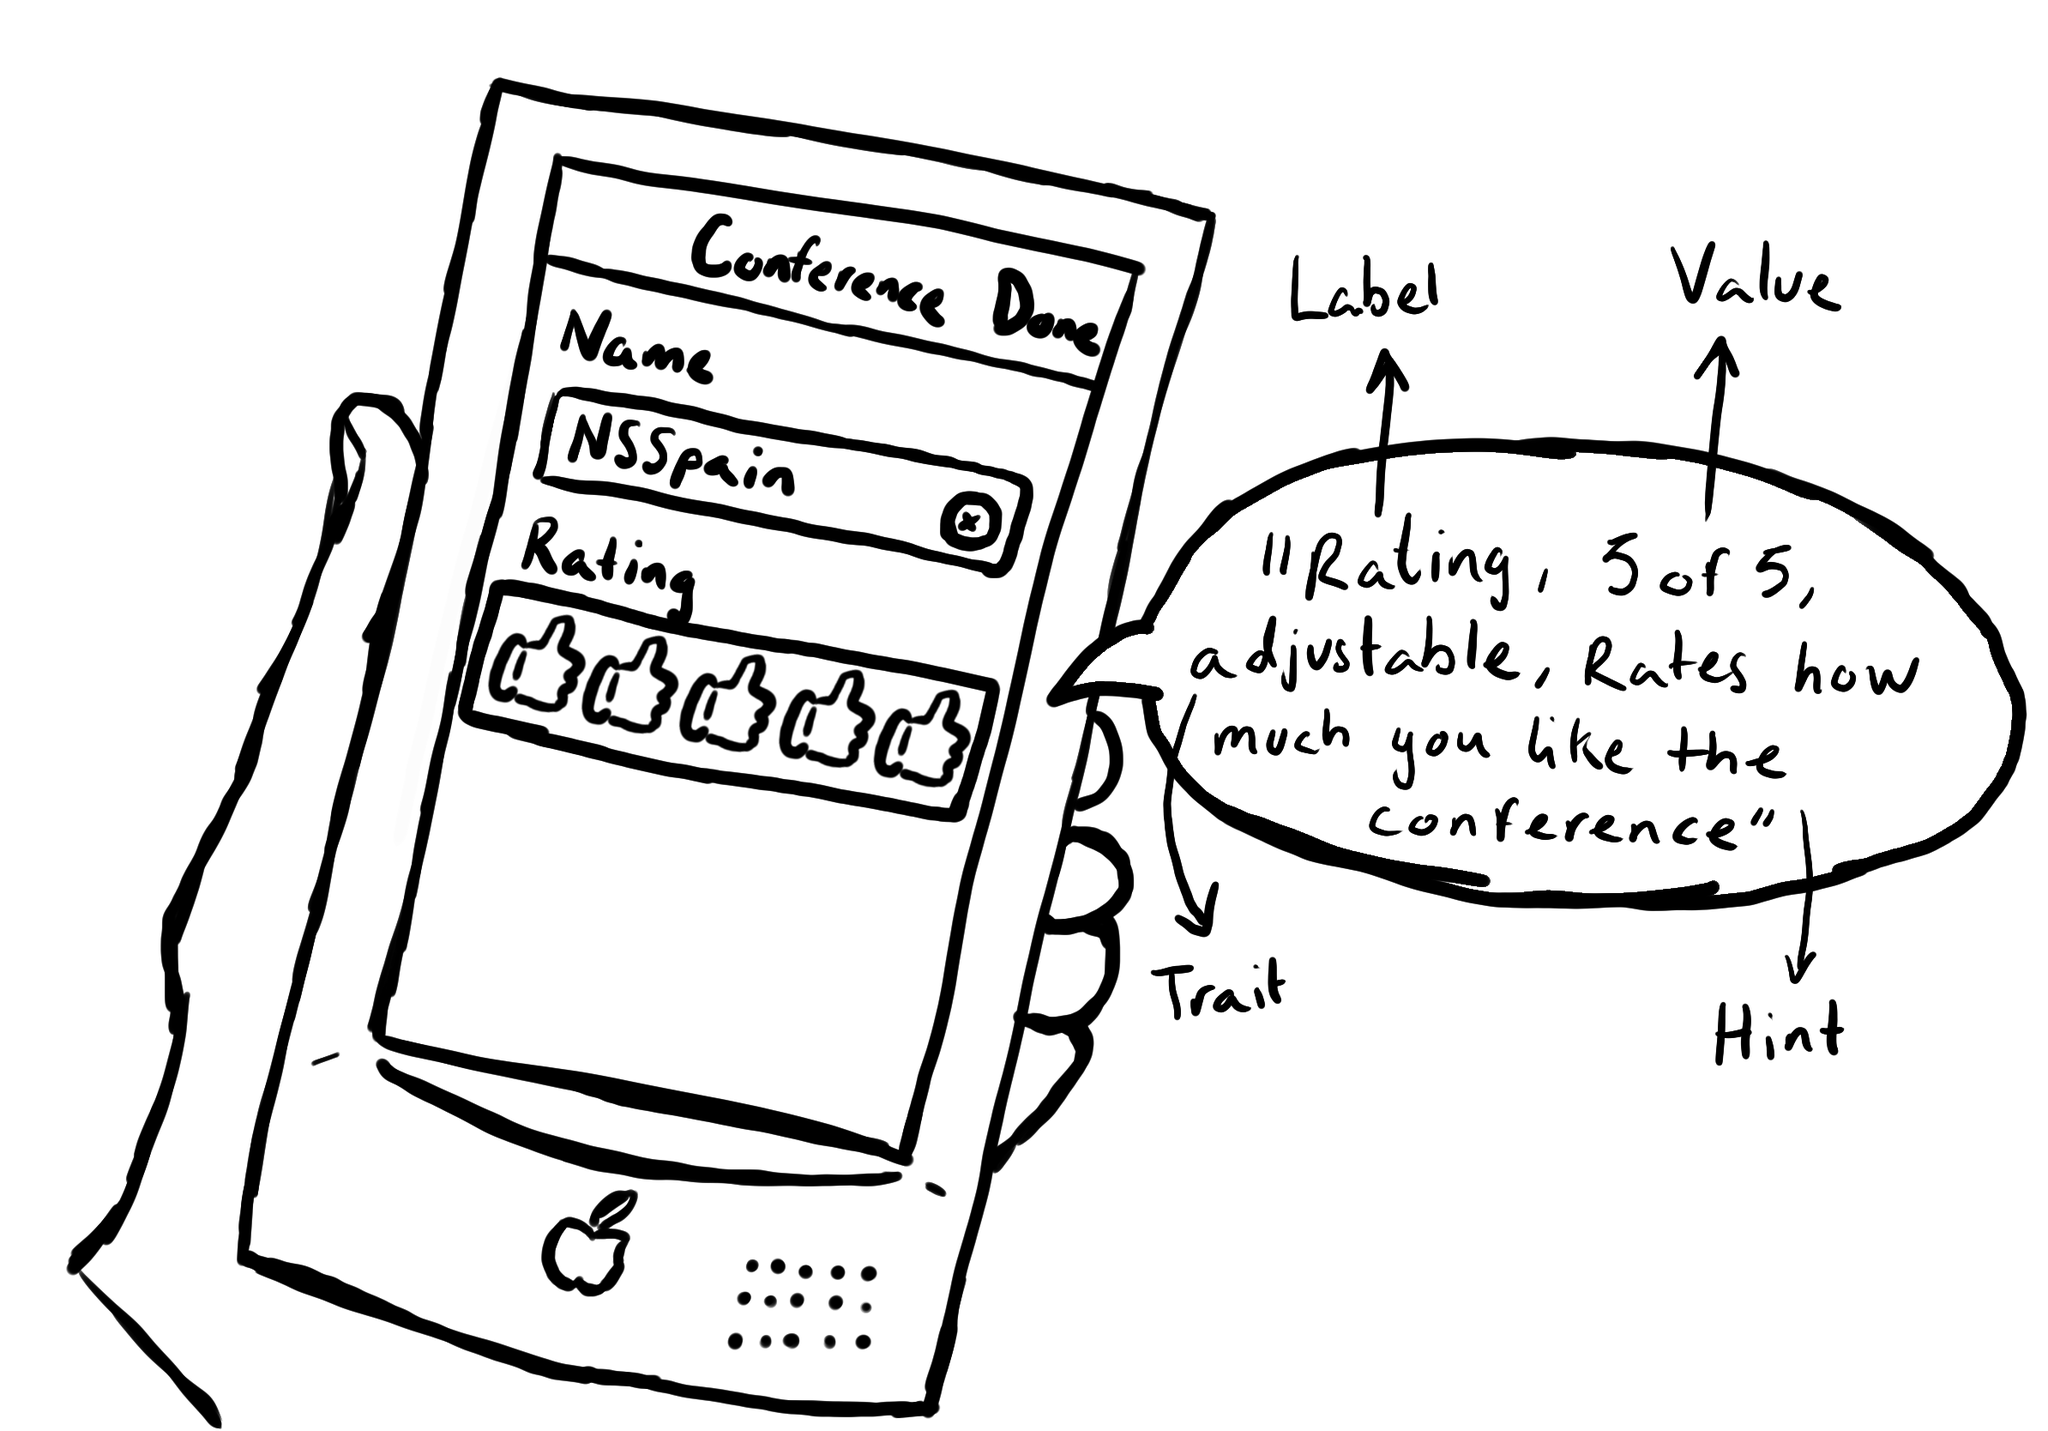 Conference Done
Name
NSSpain
Rating
Label
Value
"Rating, 5 of 5,
adjustable, Rates how
much you like the
conference"
Trait
Hint